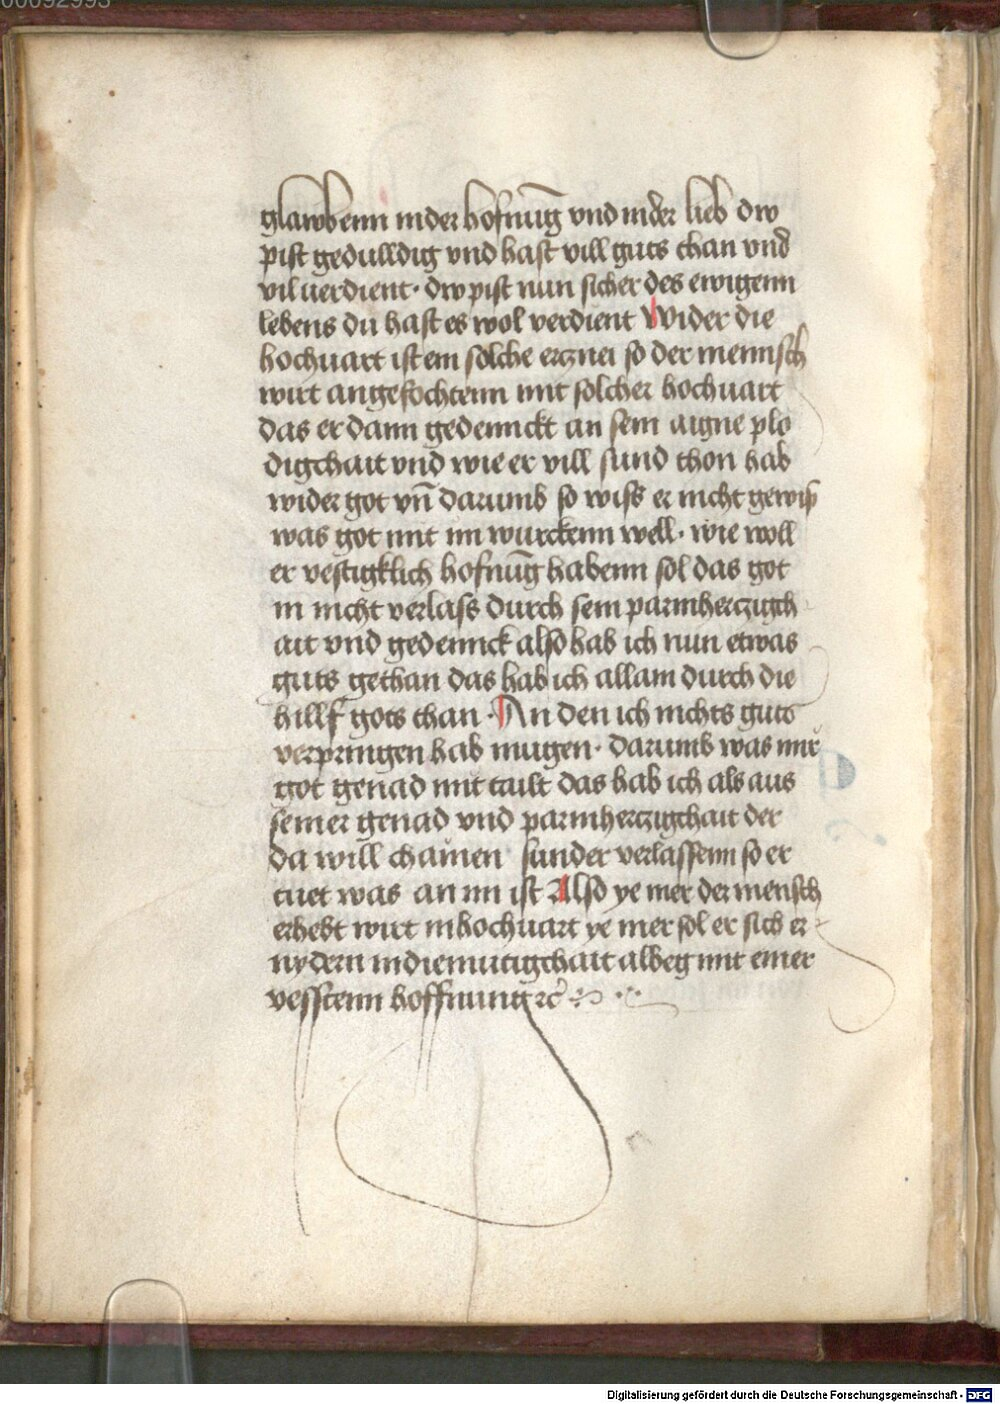 00092993
glawbenn in der hofnūg vnd in der lieb dw
pist gedulldig vnd hast vill guts than vnd
vil uerdient · dw pist nun sicher des ewigenn
lebens du hast es wol verdient Wider die
hochuart ist ein solche ercznei so der mennsch
wirt angefochtenn mit solcher hochuart
das er dann gedennckt an sein aigne plo
digchait vnd wie er vill sund thon hab
wider got vn̄ darumb so wiss er nicht gewiß
was got mit im wurckenn well · wie woll
er vestigklich hofnūg habenn sol das got
in nicht verlass durch sein parmherczigch
ait vnd gedennck also hab ich nun etwas
guts gethan das hab ich allain durch die
hillf gots than · An den ich nichts guts
verpringen hab mugen · darumb was mir
got genad mit tailt das hab ich als aus
seiner genad vnd parmherczigchait der
da will chainen sunder verlassenn so er
tuet was an im ist Also ye mer der mensch
erhebt wirt in hochuart ye mer sol er sich er
nydern in diemutigchait albeg mit einer
vesstenn hoffnung ⁊c̄
Digitalisierung gefördert durch die Deutsche Forschungsgemeinschaft - DFG